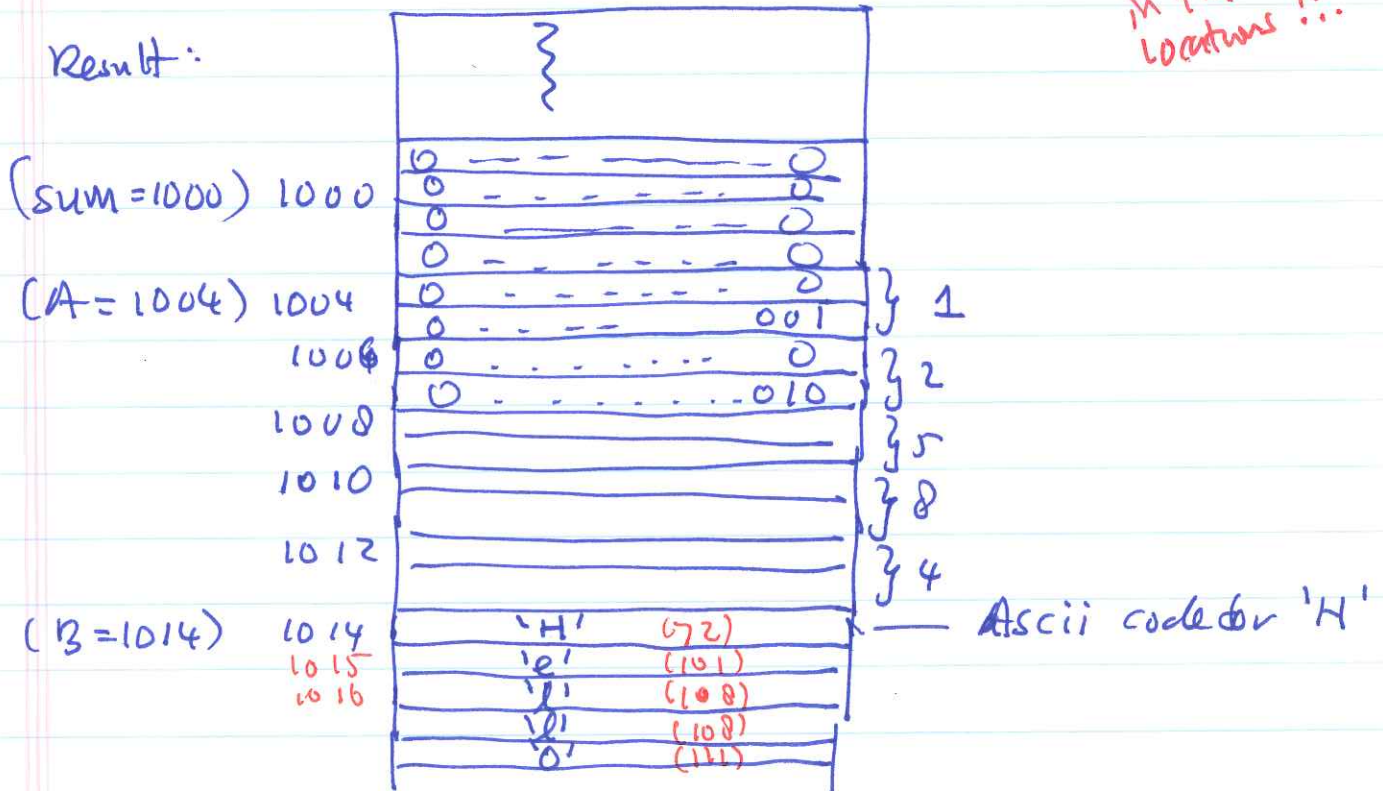 Locations !..
Result:
0 -- -- ---- -- 0
(sum=1000) 1000 0 - - - - - - 0
0 ---- -- -- 0
0 - - - - - - 0
(A=1004) 1004 0 - - - - - - - 0 } 1
0 - - -- 001
1006 0 . . . . . . . 0 } 2
0 - . . . . . . . 010
1008 } 5
1010 } 8
1012 } 4
(B=1014) 1014 'H' (72) — Ascii code for 'H'
1015 'e' (101)
1016 'l' (108)
'l' (108)
'o' (111)